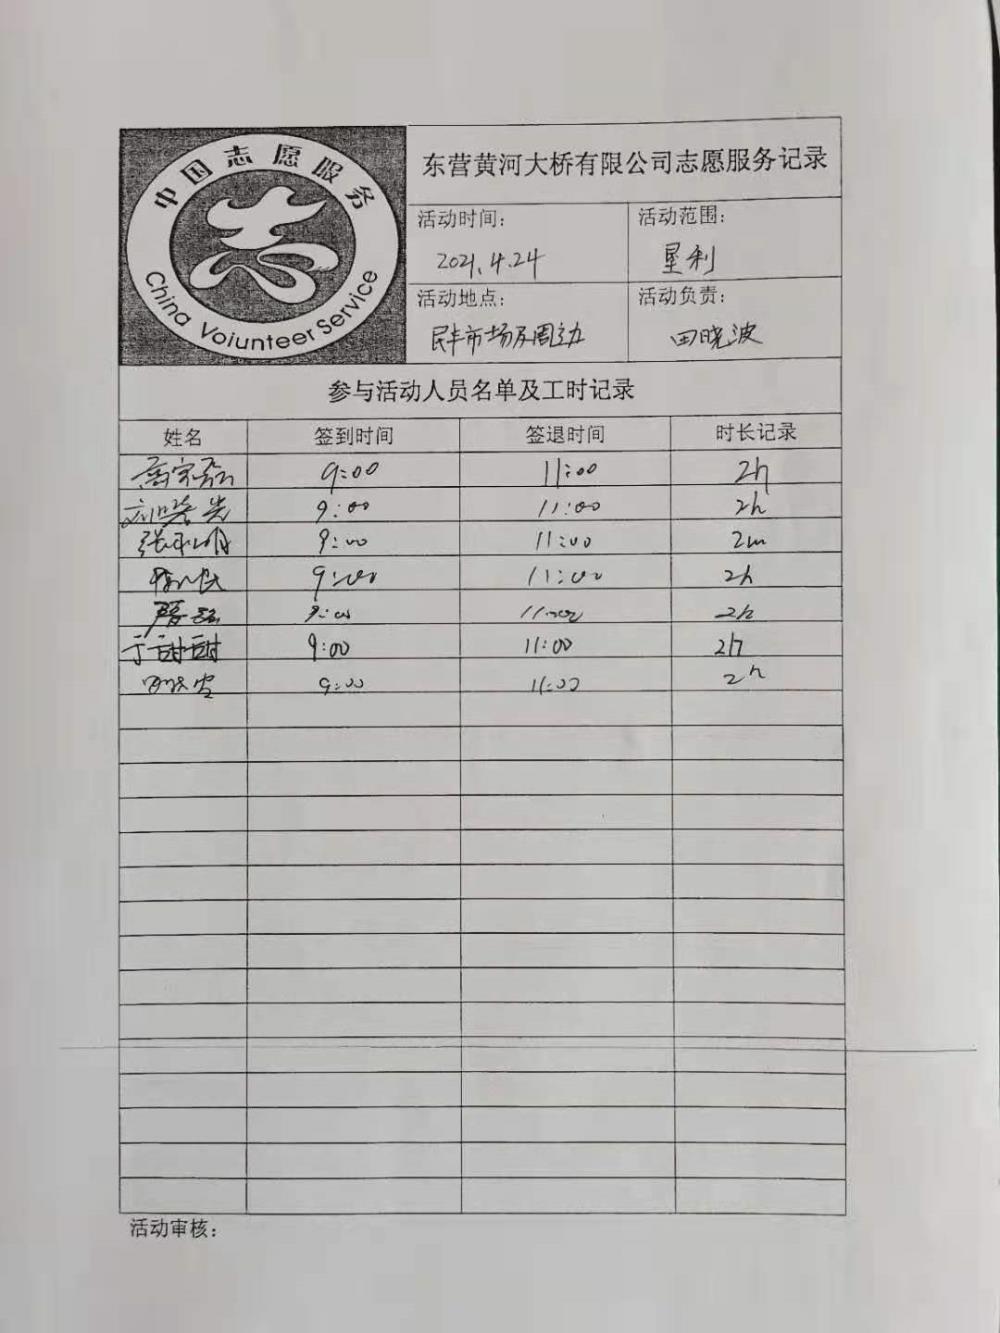 中国志愿服务
China Voiunteer Service
东营黄河大桥有限公司志愿服务记录
活动时间： 活动范围：
2021.4.24 垦利
活动地点： 活动负责：
民丰市场及周边 田晓波
参与活动人员名单及工时记录
姓名 签到时间 签退时间 时长记录
9:00 11:00 2h
9:00 11:00 2h
9:00 11:00 2m
9:00 11:00 2h
9:00 11:00 2h
于甜甜 9:00 11:00 2h
9:00 11:00 2h
活动审核：